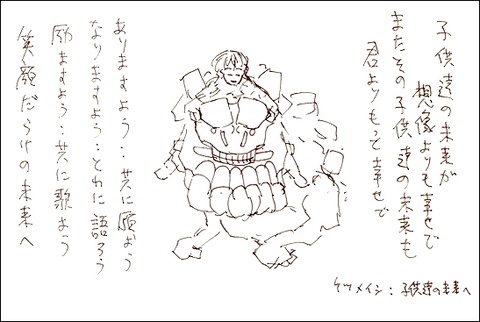 子供達の未来が
想像よりも幸せで
またその子供達の未来も
君よりもって幸せで
ありますよう‥共に願おう
なりますよう‥とわに語ろう
励ますよう‥共に歌おう
笑顔だらけの未来へ
ケツメイシ：子供達の未来へ